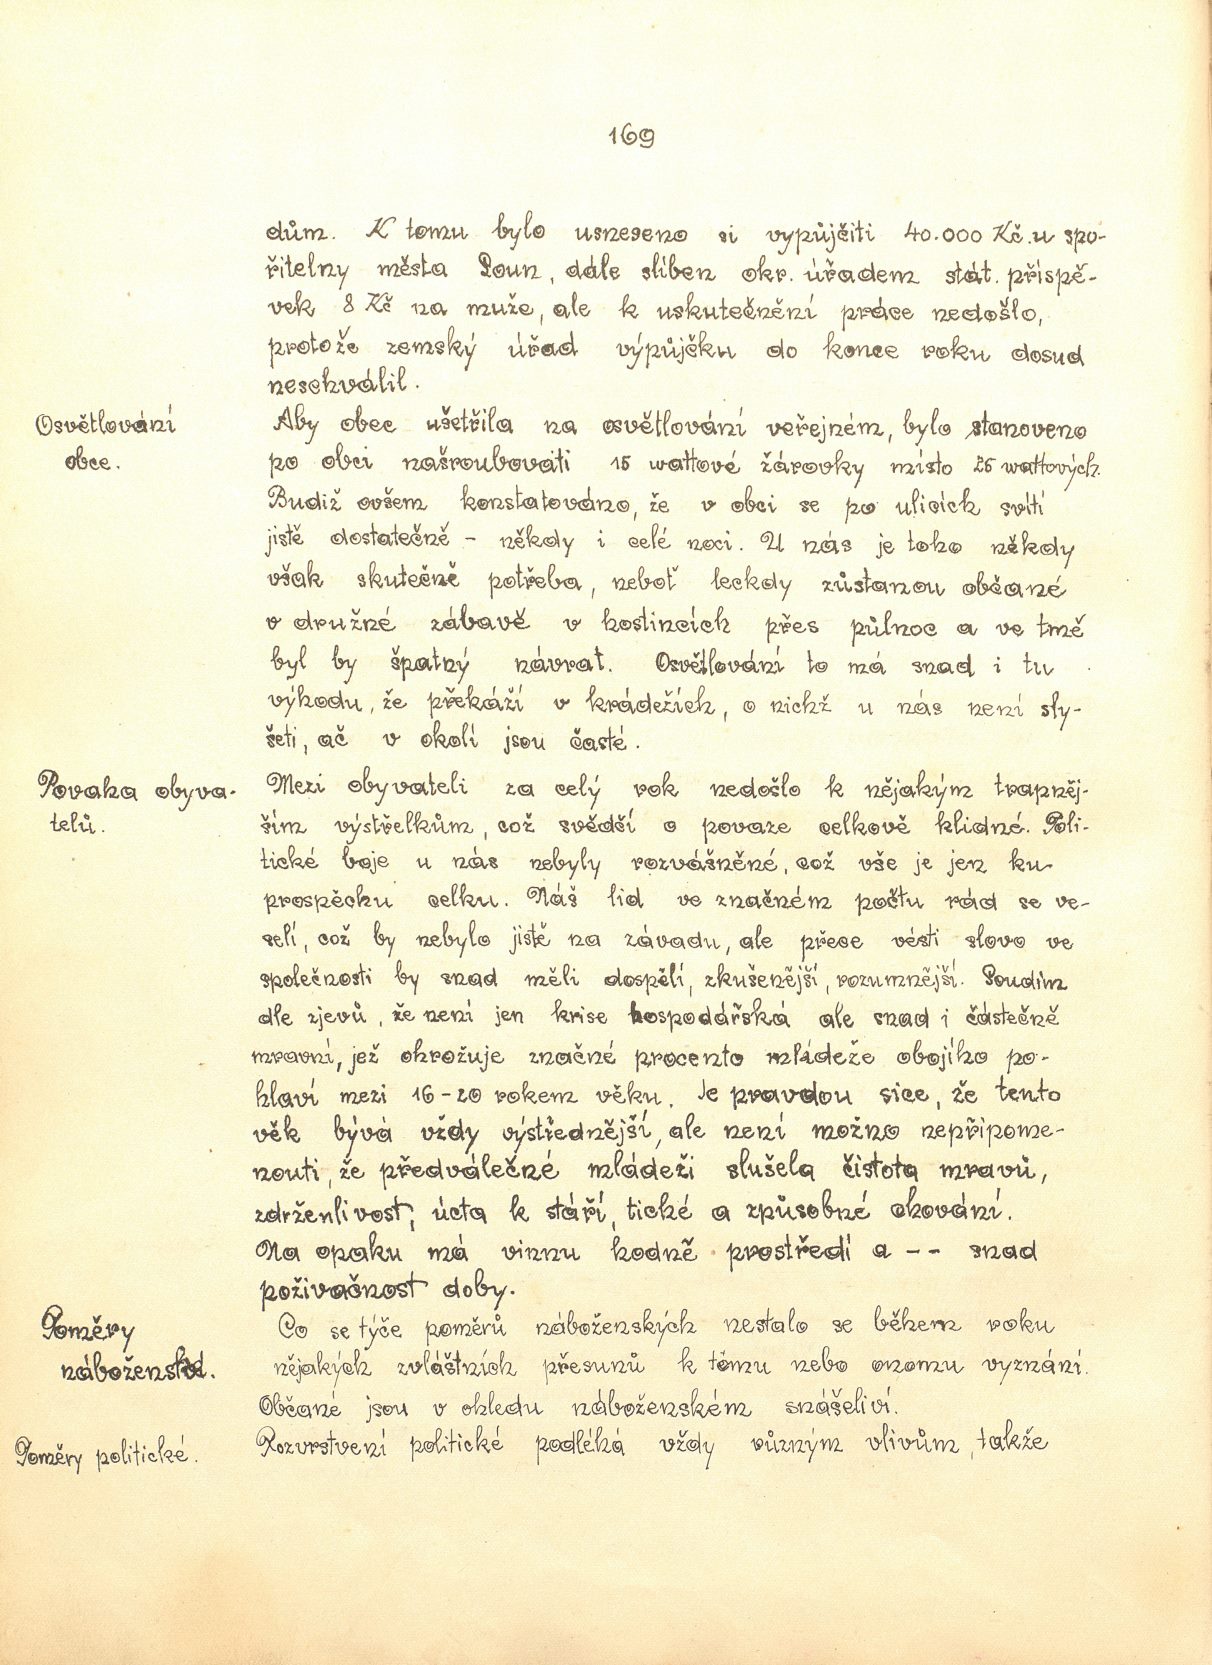 169
dům. K tomu bylo usneseno si vypůjčiti 40.000 Kč u spo-
řitelny města Loun, dále slíben okr. úřadem stát. příspě-
vek 8 Kč na muže, ale k uskutečnění práce nedošlo,
protože zemský úřad výpůjčku do konce roku dosud
neschválil.
Osvětlování
obce.
Aby obec ušetřila na osvětlování veřejném, bylo stanoveno
po obci našroubovati 15 wattové žárovky místo 25 wattových.
Budiž ovšem konstatováno, že v obci se po ulicích svítí
jistě dostatečně - někdy i celé noci. U nás je toho někdy
však skutečně potřeba, neboť leckdy zůstanou občané
v družné zábavě v hostincích přes půlnoc a ve tmě
byl by špatný návrat. Osvětlování to má snad i tu
výhodu, že překáží v krádežích, o nichž u nás není sly-
šeti, ač v okolí jsou časté.
Povaha obyva-
telů.
Mezi obyvateli za celý rok nedošlo k nějakým trapněj-
ším výstřelkům, což svědší o povaze celkově klidné. Poli-
tické boje u nás nebyly rozvášněné, což vše je jen ku
prospěchu celku. Náš lid ve značném počtu rád se ve-
selí, což by nebylo jistě na závadu, ale přece vésti slovo ve
společnosti by snad měli dospělí, zkušenější, rozumnější. Soudím
dle zjevů, že není jen krise hospodářská ale snad i částečně
mravní, jež ohrožuje značné procento mládeže obojího po-
hlaví mezi 16-20 rokem věku. Je pravdou sice, že tento
věk bývá vždy výstřednější, ale není možno nepřipome-
nouti, že předválečné mládeži slušela čistota mravů,
zdrženlivost, úcta k stáří, tiché a způsobné chování.
Na opaku má vinnu hodně prostředí a -- snad
poživačnost doby.
Poměry
náboženské.
Co se týče poměrů náboženských nestalo se během roku
nějakých zvláštních přesunů k tomu nebo onomu vyznání.
Občané jsou v ohledu náboženském snášeliví.
Poměry politické.
Rozvrstvení politické podléhá vždy různým vlivům, takže